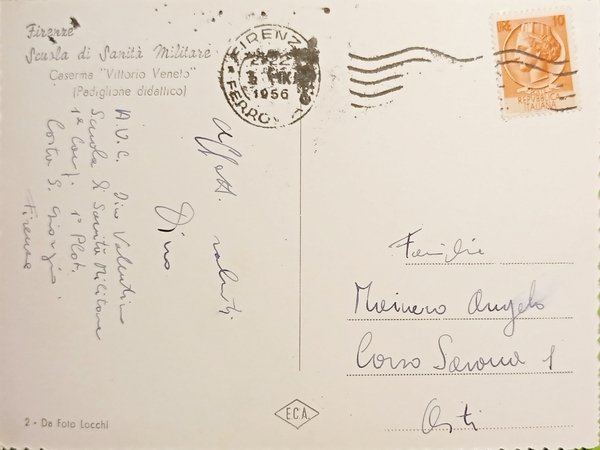 Firenze
Scuola di Sanità Militare
Caserma "Vittorio Veneto"
(Padiglione didattico)
FIRENZE
FERROV
1956
10
REPUBBLICA
ITALIANA
A.U.C. Dino Valentino
Scuola di Sanità Militare
1ª Comp. 1° Plot.
Costa S. Giorgio
Firenze
Affett. saluti
Dino
Famiglia
Mainero Angelo
Corso Savona 1
Asti
2 - Da Foto Locchi
E.C.A.